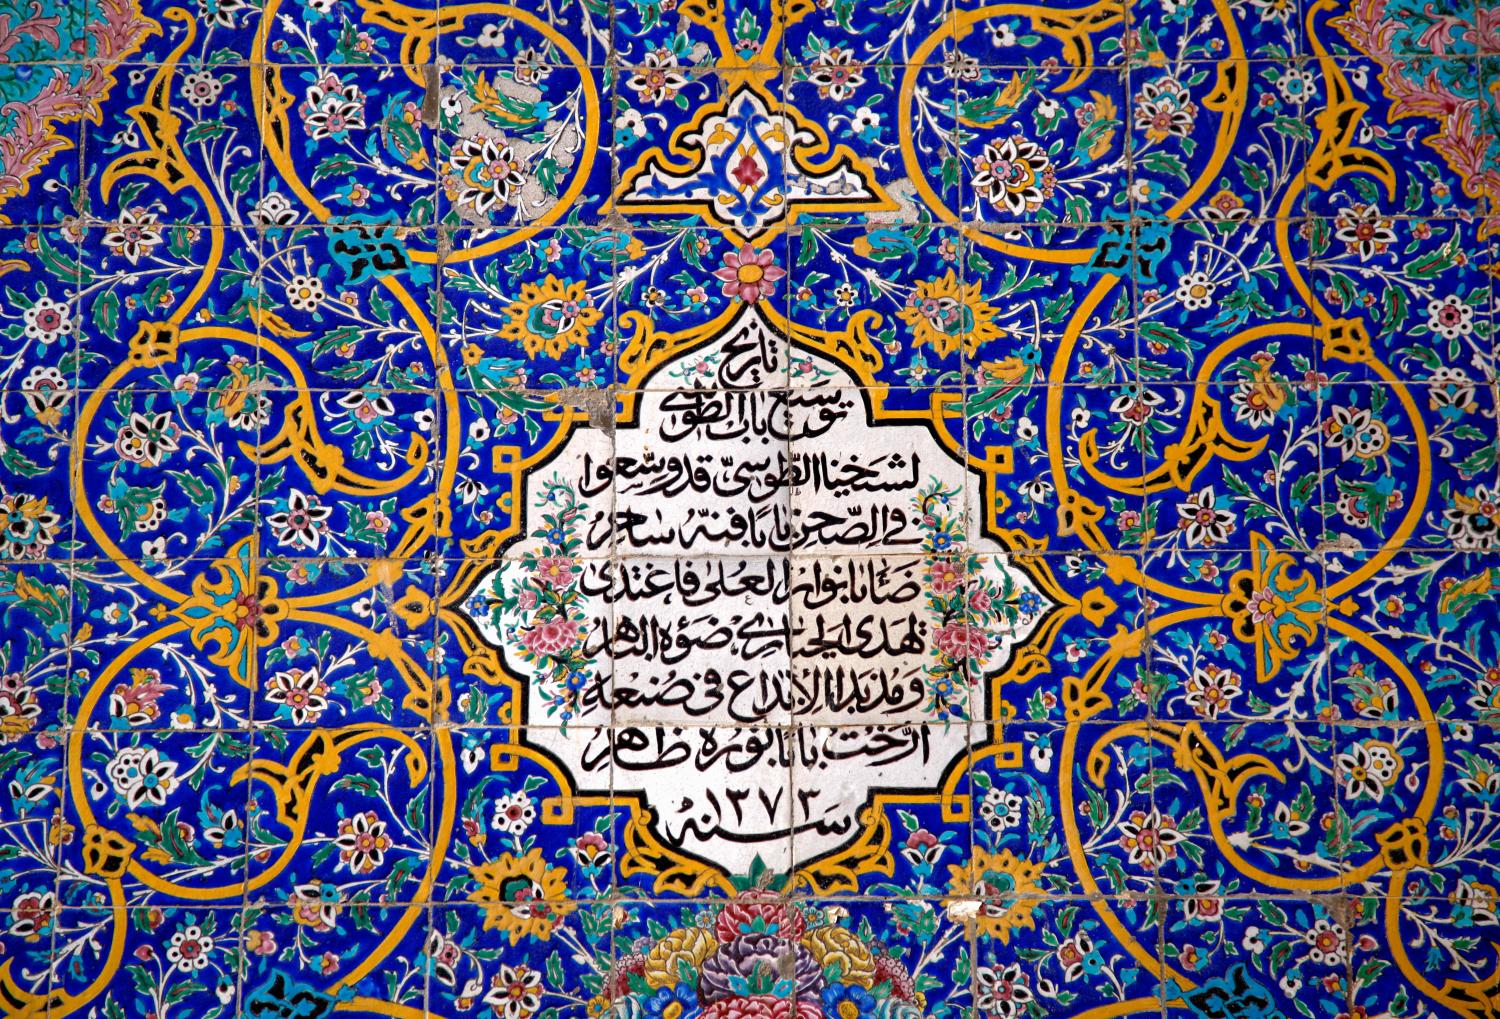 تاريخ
توسيع باب الطوسي
لشيخنا الطوسيّ قد وسّعوا
في الصّحن بابًا فنّهُ ساحرُ
ضَاءَ بانوار العُلى فاغتدى
تهدى الحيارى ضوؤه الباهرُ
ومذ بدا الابداع في صُنعهِ
ارّختُ بابًا نورُهُ ظاهرُ
سَنهُ ١٣٧٣